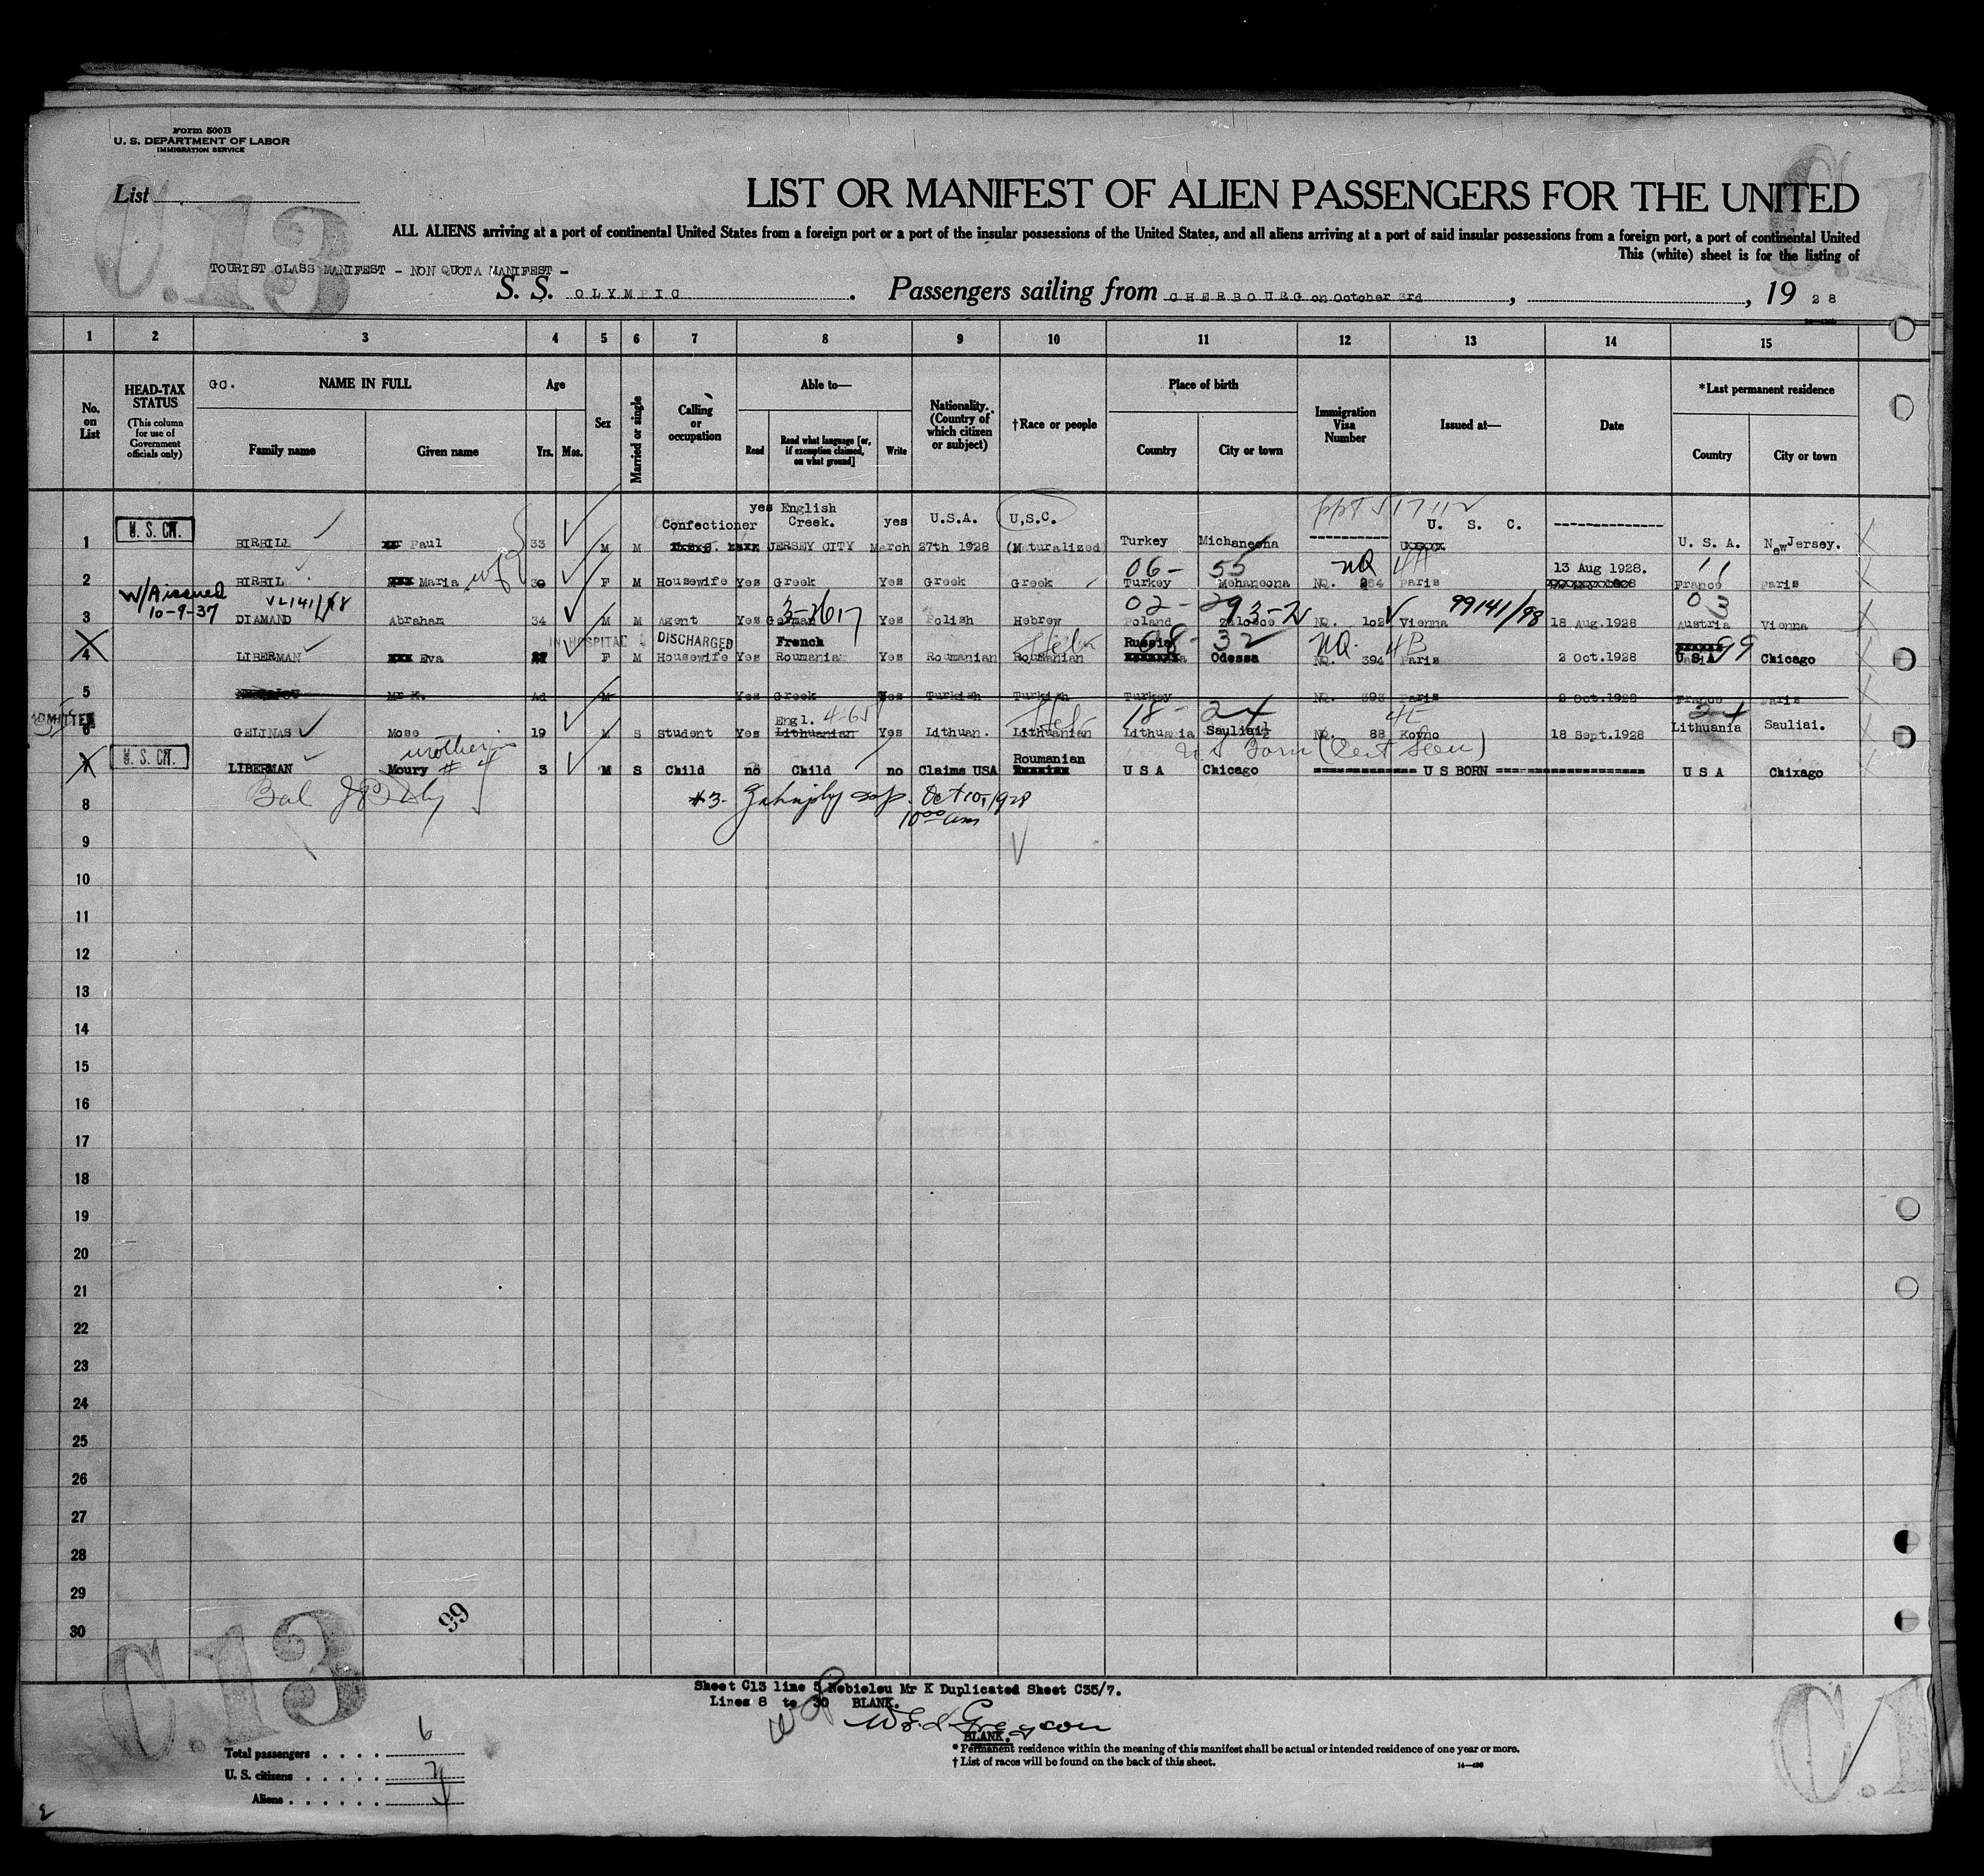 Form 500B
U. S. DEPARTMENT OF LABOR
IMMIGRATION SERVICE
C.13
C.1
List
LIST OR MANIFEST OF ALIEN PASSENGERS FOR THE UNITED
ALL ALIENS arriving at a port of continental United States from a foreign port or a port of the insular possessions of the United States, and all aliens arriving at a port of said insular possessions from a foreign port, a port of continental United
This (white) sheet is for the listing of
TOURIST CLASS MANIFEST - NON QUOTA MANIFEST -
S. S. OLYMPIC. Passengers sailing from CHERBOURG on October 3rd, , 19 28
1 2 3 4 5 6 7 8 9 10 11 12 13 14 15
No. on List
HEAD-TAX STATUS (This column for use of Government officials only)
GC. NAME IN FULL
Family name Given name
Age Yrs. Mos.
Sex
Married or single
Calling or occupation
Able to— Read Read what language [or, if exemption claimed, on what ground] Write
Nationality. (Country of which citizen or subject)
†Race or people
Place of birth Country City or town
Immigration Visa Number
Issued at—
Date
*Last permanent residence Country City or town
ppt 517112
U. S. CIT. Confectioner yes English Creek. yes U.S.A. U.S.C. U. S. C. --------------
1 BIRBILL Paul 33 M M JERSEY CITY March 27th 1928 (Naturalized) Turkey Michaneona ---------- U. S. A. New Jersey.
06- 55 NQ 4A 13 Aug 1928. 11
2 BIRBIL Maria wf 30 F M Housewife Yes Greek Yes Greek Greek Turkey Mehaneona NQ. 264 Paris France Paris
W/A issued 10-9-37 VL141/98 3-2617 02-29 3-2 99141/98 03
3 DIAMAND Abraham 34 M M Agent Yes German Yes Polish Hebrew Poland Zalosce NQ. 102 Vienna 18 Aug.1928 Austria Vienna
IN HOSPITAL DISCHARGED French Heb Russia 08-32 NQ. 4B 99
4 LIBERMAN Eva F M Housewife Yes Roumania Yes Roumanian Roumanian Odessa NQ. 394 Paris 2 Oct.1928 U S A Chicago
5 Mr K. Ad M Yes Greek Yes Turkish Turkish Turkey NQ. 393 Paris 2 Oct.1928 France Paris
ADMITTED Engl. 4-65 Heb 18- 24 4E 24
6 GELINAS Mose 19 M S Student Yes Lithuanian Yes Lithuan. Lithuanian Lithuania Sauliai NQ. 88 Kovno 18 Sept.1928 Lithuania Sauliai.
U. S. CIT. mother in # 4 Roumanian U S Born (Cert Seen)
7 LIBERMAN Moury 3 M S Child no Child no Claims USA Russian U S A Chicago ============ U S BORN ================ U S A Chixago
8 #3- Oct 10, 1928
10 00 am
9
10
11
12
13
14
15
16
17
18
19
20
21
22
23
24
25
26
27
28
29
30
99
C.13
C.1
Sheet C13 line 5 Nebieleu Mr K Duplicated Sheet C35/7.
Lines 8 to 30 BLANK.
BLANK.
Total passengers . . . . 6
U. S. citizens . . . . . 2
Aliens . . . . . .
* Permanent residence within the meaning of this manifest shall be actual or intended residence of one year or more.
† List of races will be found on the back of this sheet.